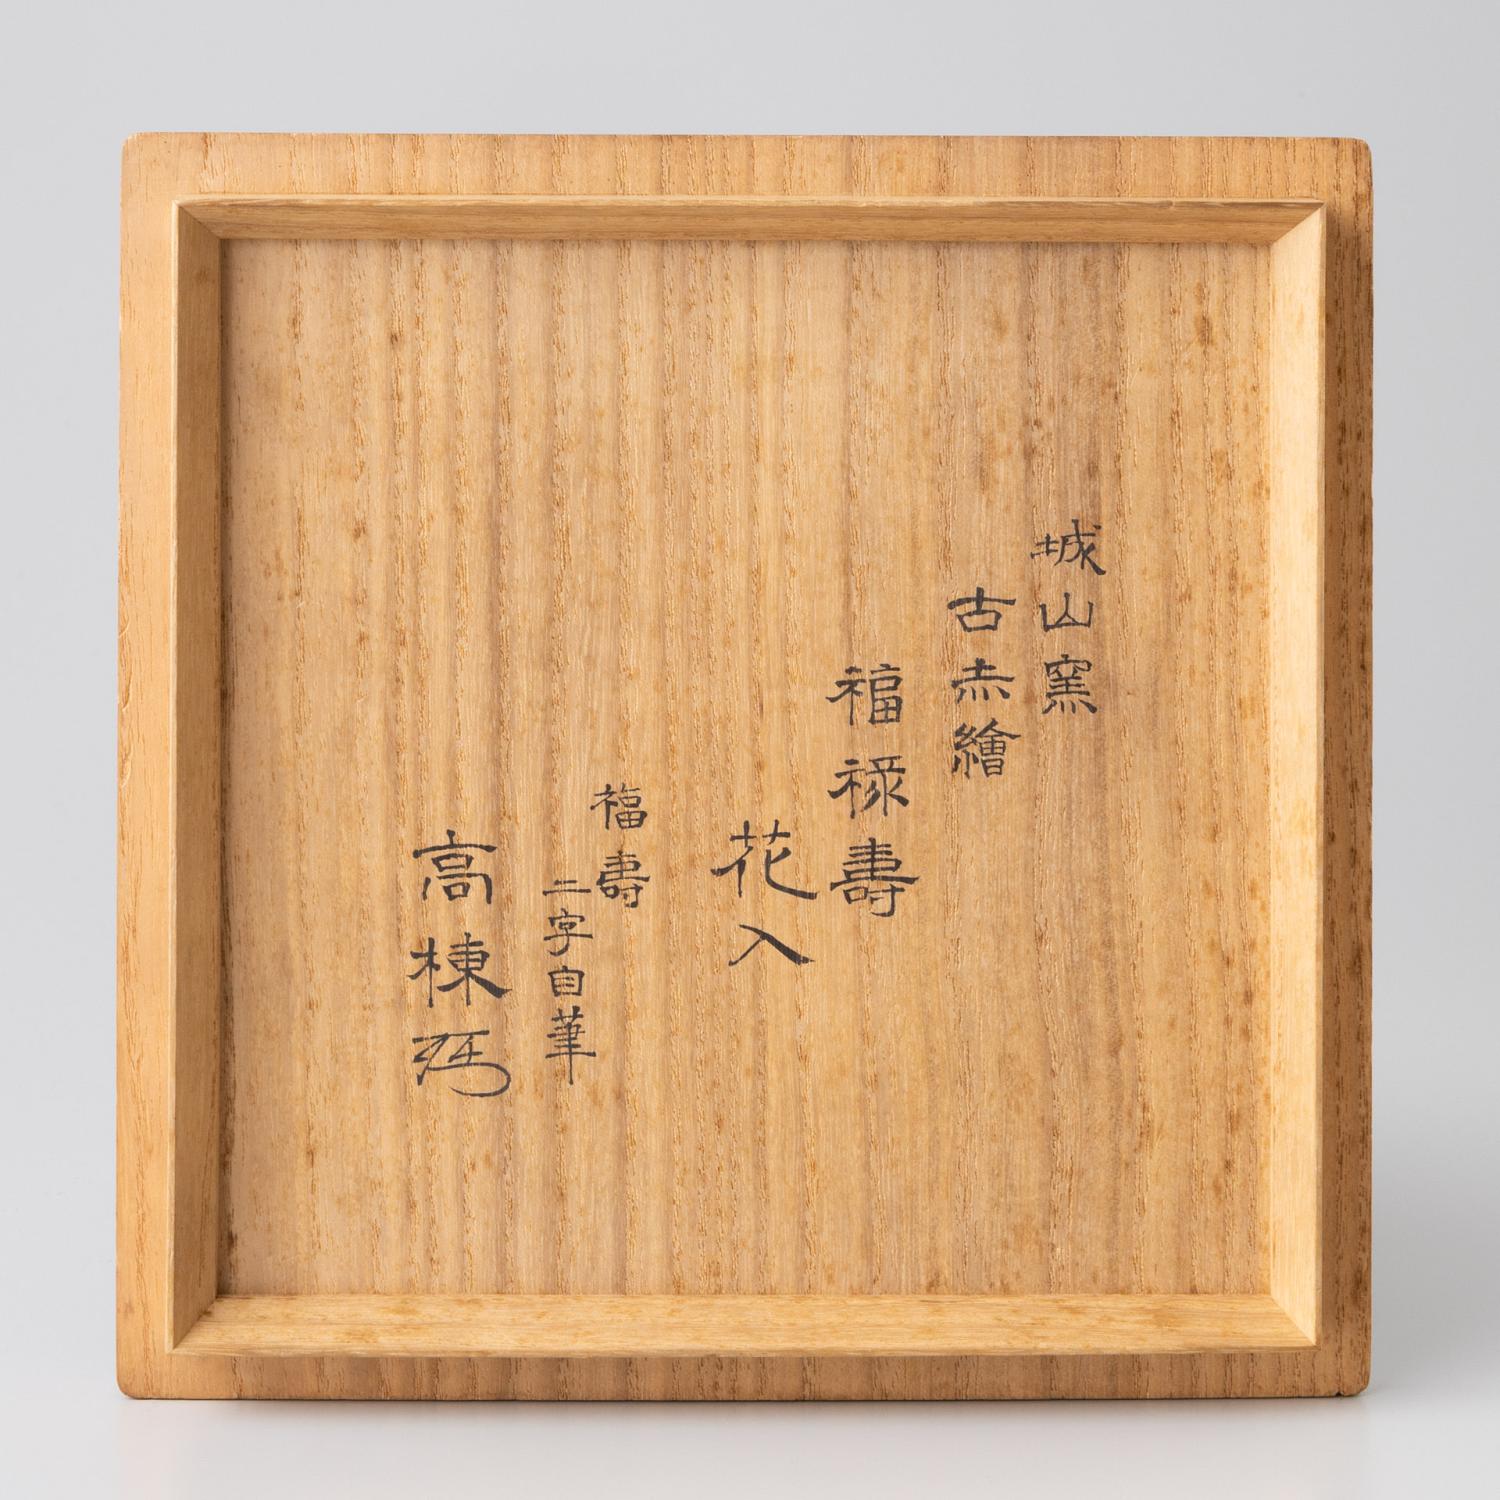 城山窯
古赤繪
福禄壽
花入
福壽
二字自筆
高棟